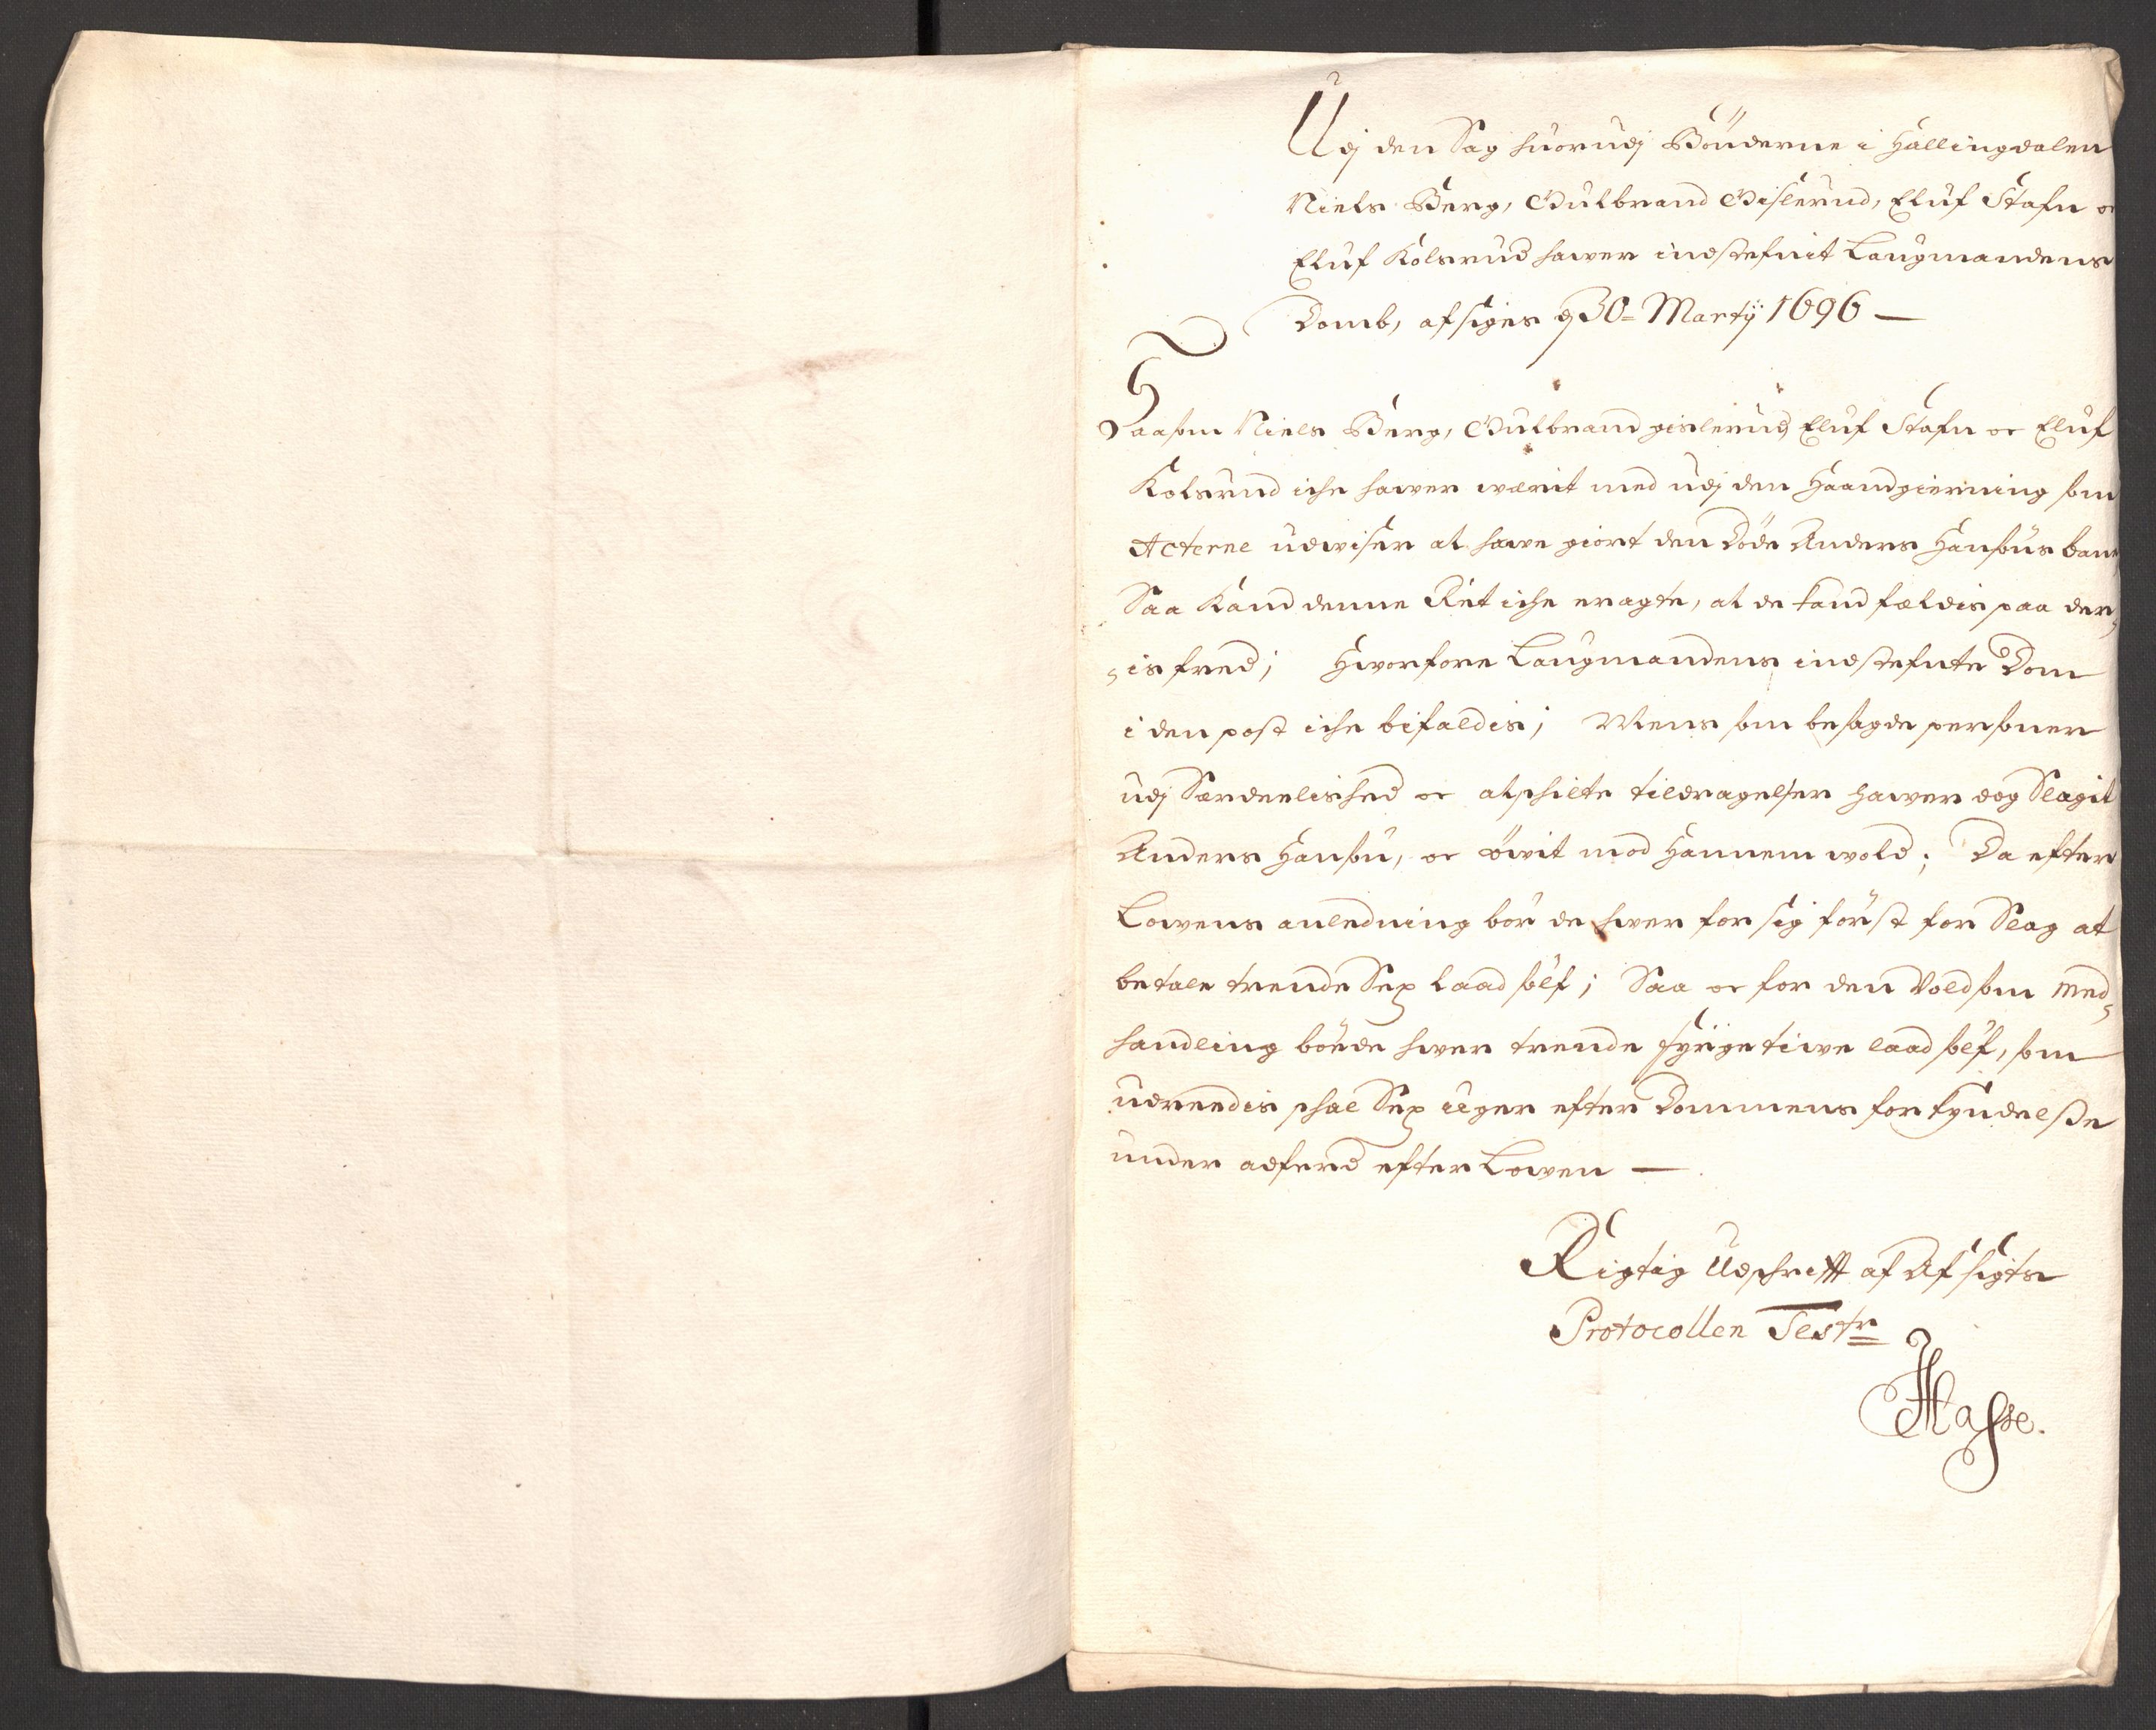 Udj den Sag huorudj Bönderne i Hallingdalen
Niels Berg, Gulbrand Gislerud, Eluf Stafn oc
Eluf Kolsrud hawer indstefnit Laugmandens
Domb, afsiges d 30= Martij 1696 —
Saasom Niels Berg, Gulbrand gislerud, Eluf Stafn oc Eluf
Kolsrud iche hawer wærit med udj den Haandgierning som
Acterne udwiser at hawe giort den Döde Anders Hansøns bane,
Saa Kand denne Ret iche eragte, at de kand fældis paa der,
,is fred; Hworfore Laugmandens indstefnte Dom
i den post iche bifaldis; Mens som besagde personer
udj Særdeelished oc atskilte tildragelser hawer dog Slagit
Anders Hansøn, oc öwit mod Hannem wold; Da efter
Lowens anledning bör de hwer for sig först for Slag at
betale trende Sex Laad sølf; Saa oc for den Voldsom Med,
handling bör de hwer trende fyrigetiwe laad sølf, som
udreedis skal Sex uger efter Dommens forkyndelse
under adferd efter Lowen —
Rigtig Udskrifft af Afsigts
Protocollen Testr
Hasse.